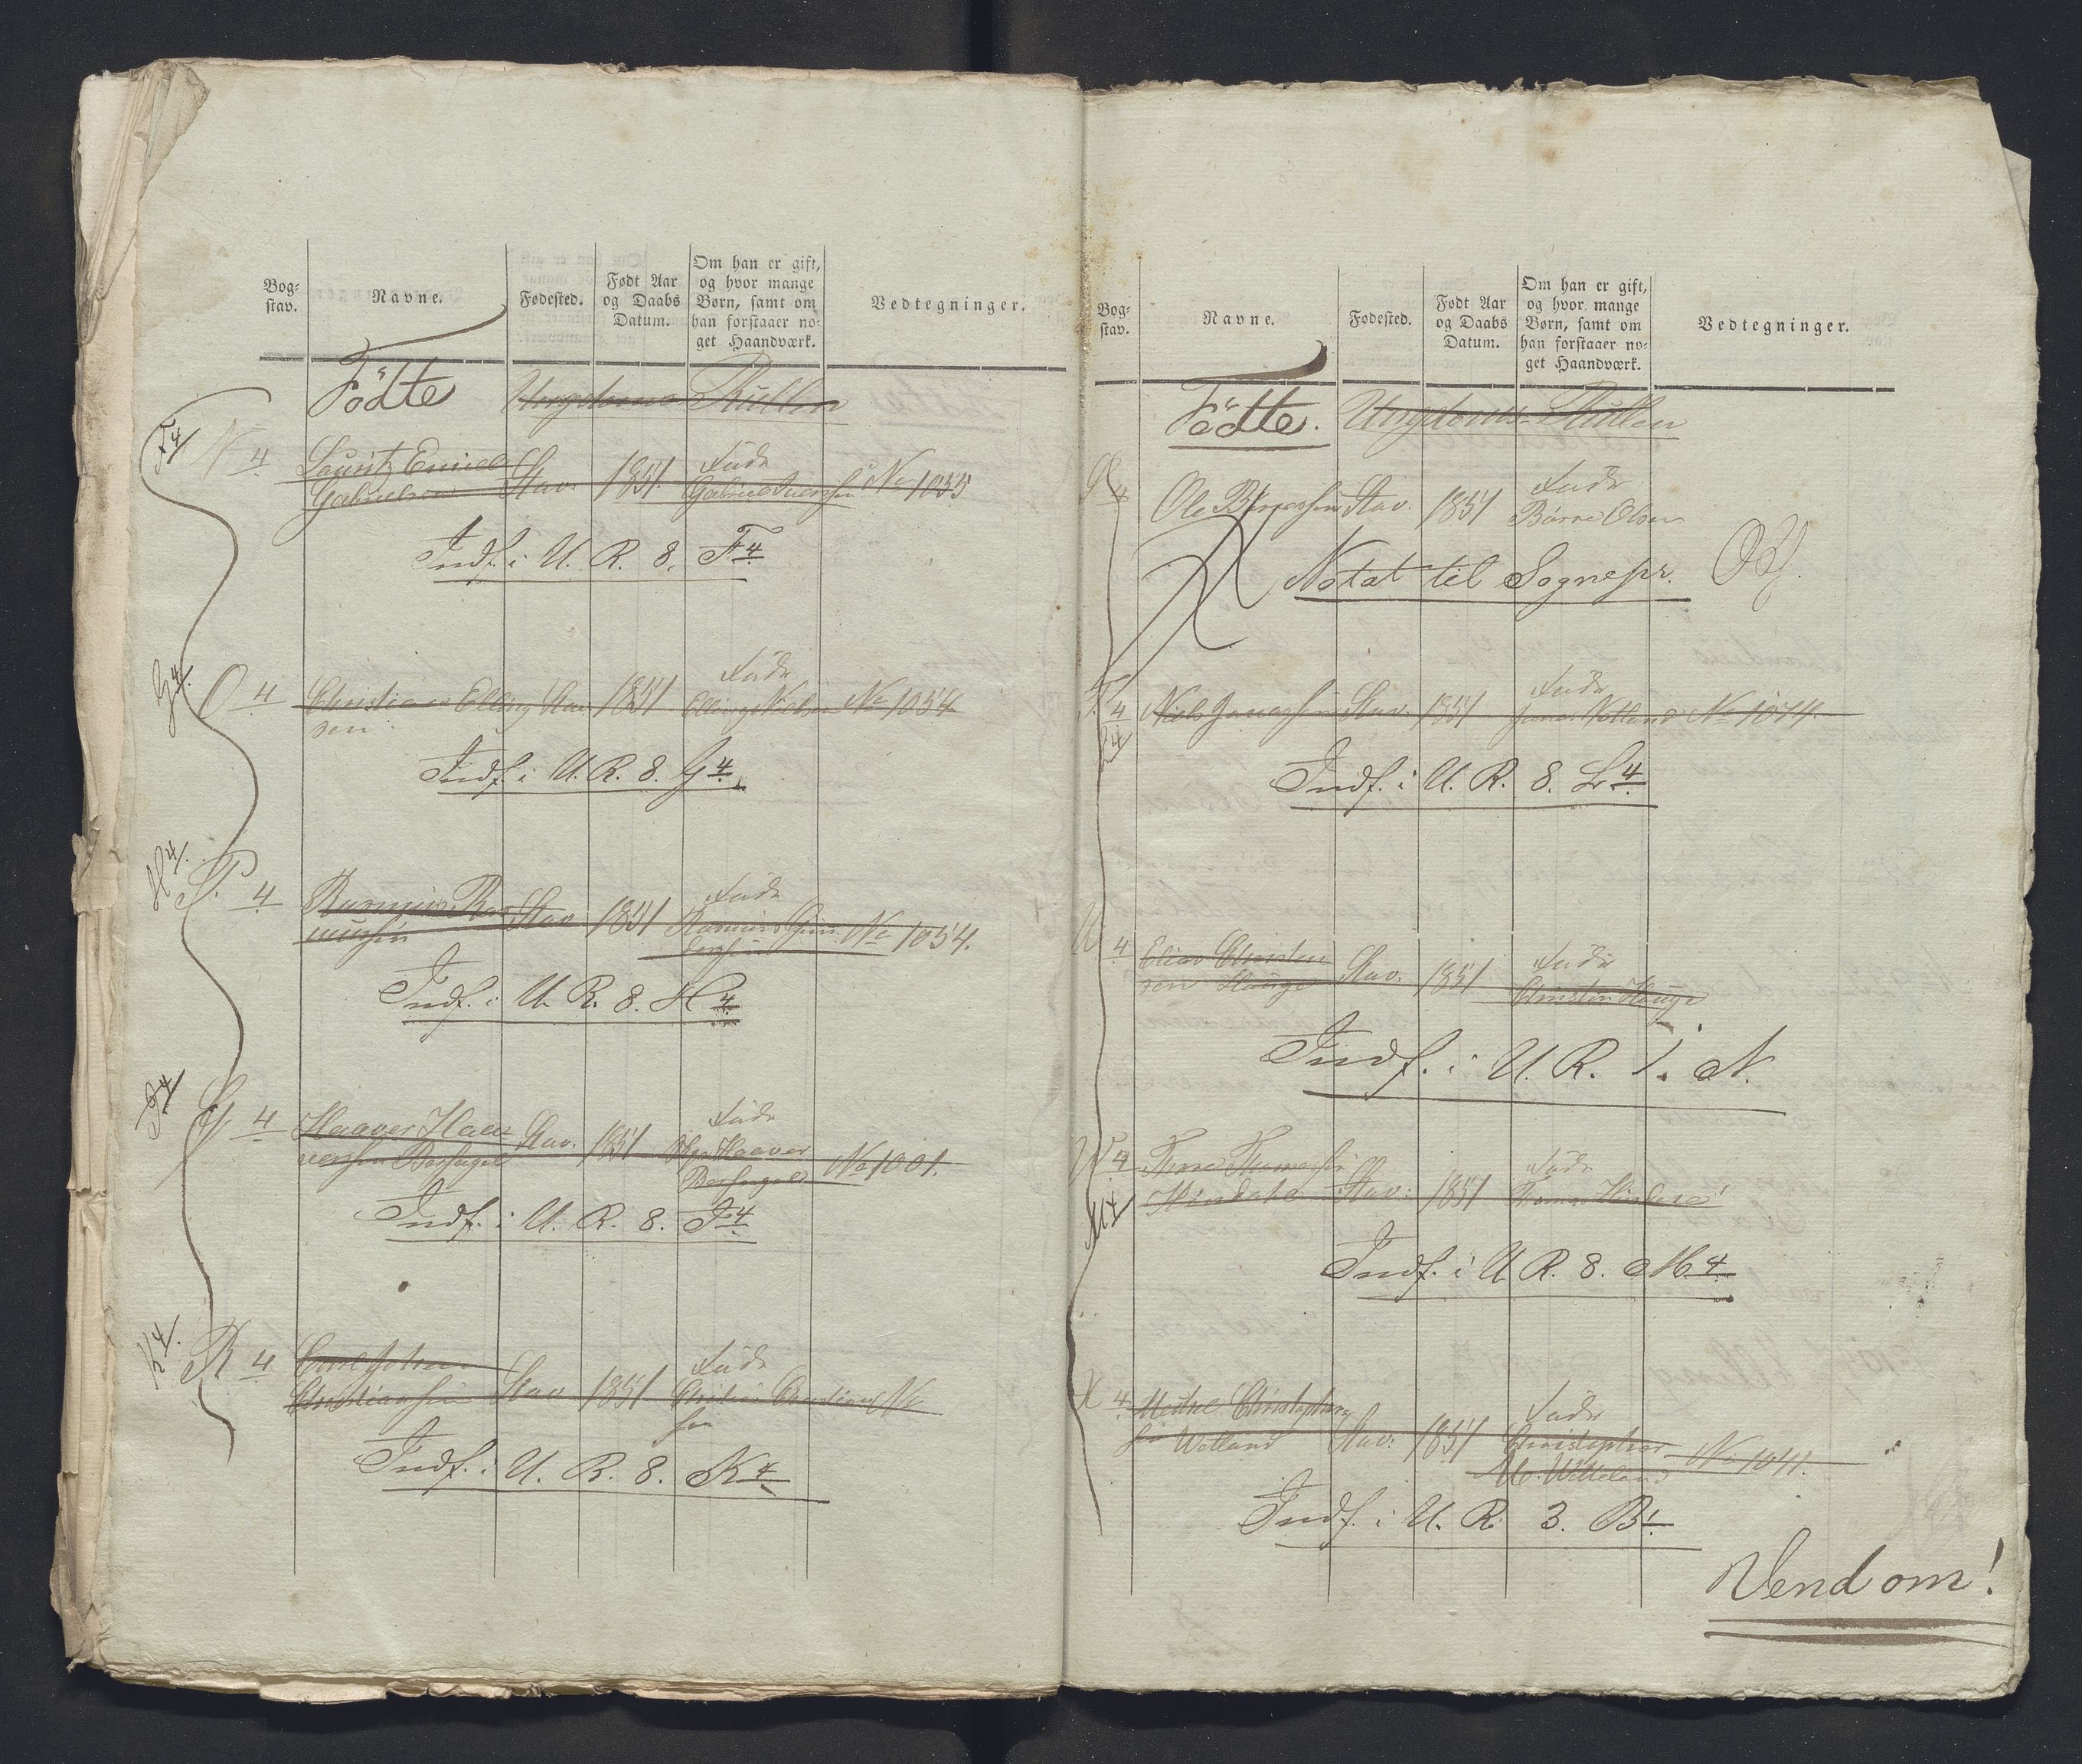 Bog-
stav.
Navne.
Fødested.
Født Aar
og Daabs
Datum.
Om han er gift,
og hvor mange
Børn, samt om
han forstaaer no-
get Haandværk.
Vedtegninger.
Födte Ungdoms Rullen
F4 N 4 Lauritz Emil Gabrielsen Stav. 1851. Fader
Gabriel No 1055
Indf. i U. R. 8. F4
G4. O 4 Christian Elling Stav 1851 Fader
sen
Elling Nielsen No 1054
Indf. i U. R. 8. G4.
H4. P. 4 Rasmus Ras Stav 1851 Fader
mussen
Rasmus No 1054.
Indf. i U. R. 8. H4
I4 Q 4 Haaver Haa Stav. 1851 Fader
versen
Haaver
No 1001.
Indf. i U. R. 8. I4.
K4. R 4 Carl Johan
Christiansen Stav 1851 Fader
Christian Christian No
sen
Indf. i U. R. 8. K4
Bog-
stav.
Navne.
Fødested.
Født Aar
og Daabs
Datum.
Om han er gift,
og hvor mange
Børn, samt om
han forstaaer no-
get Haandværk.
Vedtegninger.
Födte. Ungdoms Rullen
4 Ole Børresen Stav. 1851 Fader
Børre Olsen
Notat til Sognepr.
T. 4 Niels Jonassen Stav. 1851 Fader
Jonas No 1014.
L4
Indf. i U. R. 8. L4.
U 4 Elias Christen
sen Hauge Stav. 1851 Fader
Christen Hauge
Indf. i U. R. 1. N.
4 Stav. 1851 Fader
M4
Indf. i U. R. 8. M4.
X 4 Christopher
sen Stav. 1851 Fader
Christopher
No 1041.
Indf. i U. R. 3. B1.
Vend om!